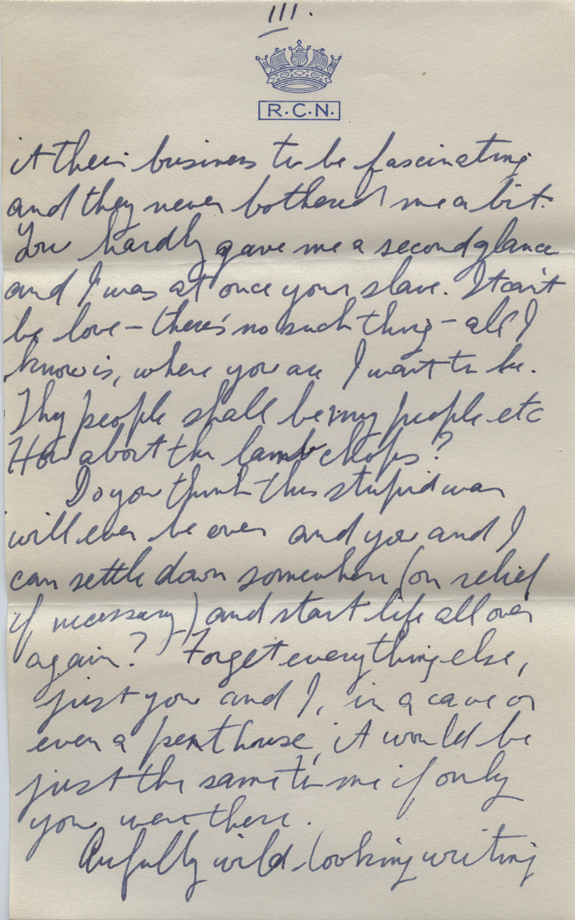 III.
R.C.N.
it their business to be fascinating
and they never bothered me a bit.
You hardly gave me a second glance
and I was at once your slave. It can't
be love – there's no such thing – all I
know is, where you are I want to be.
Thy people shall be my people etc
How about the lamb chops?
Do you think this stupid war
will ever be over and you and I
can settle down somewhere (on relief
if necessary) and start life all over
again? Forget everything else,
just you and I, in a cave or
even a penthouse, it would be
just the same to me if only
you were there.
Awfully wild-looking writing